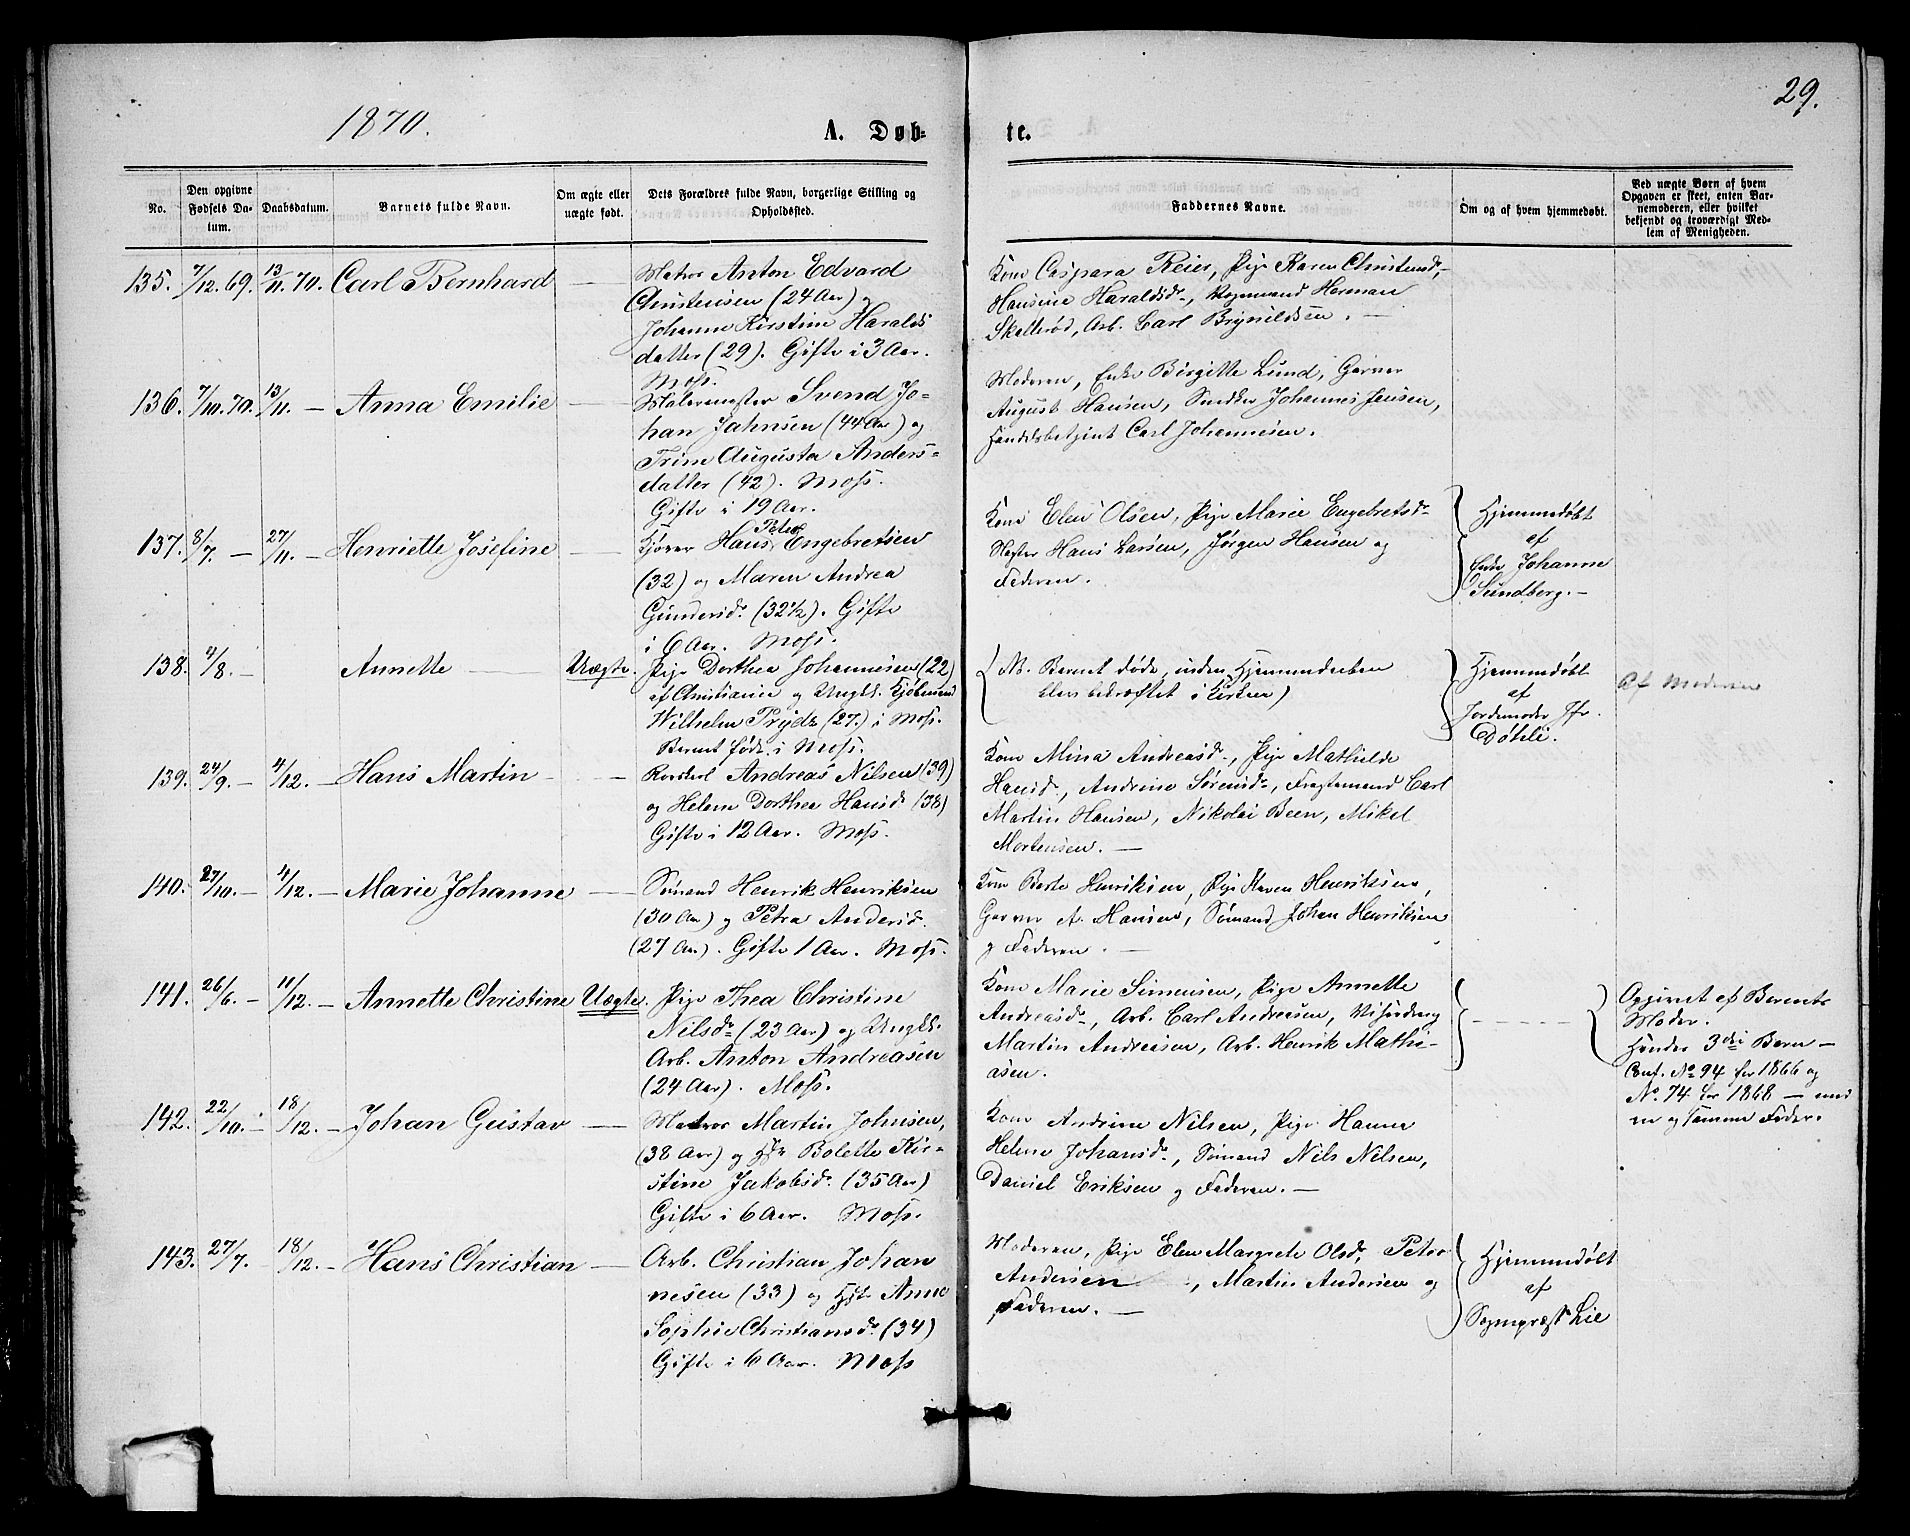 29.
1870.
A. Døb-
te.
No.
Den opgivne Fødsels Da-
tum.
Daabsdatum.
Barnets fulde Navn.
Om ægte eller
uægte født.
Dets Forældres fulde Navn, borgerlige Stilling og
Opholdssted.
Faddernes Navne.
Om og af hvem hjemmedøbt.
Ved uægte Børn af hvem
Opgaven er skeet, enten Bar-
nemoderen, eller hvilket
bekjendt og troværdigt Med-
lem af Menigheden.
135. 7/12. 69. 13/11. 70. Carl Bernhard —
Matros Anton Edvard
Christensen (24 Aar) og
Johanne Kirstine Haralds
datter (29). Gifte i 3 Aar.
Moss.
Kone Caspara Reier, Pige Karen Christensd.,
Hansine Haraldsd., Vognmand Herman
Skallerød, Arb. Carl Brynildsen. —
136. 7/10. 70. 13/11. — Anna Emilie —
Malermester Svend Jo-
han Jahnsen (44 Aar) og
Trine Augusta Anders-
datter (42). Moss.
Gifte i 19 Aar.
Moderen, Enke Birgitte Lund, Garver
August Hansen, Snedker Johannes Jensen,
Handelsbetjent Carl Johannesen.
137. 8/7. — 27/11. — Henriette Josefine —
Kjører Hans Peter Engebretsen
(32) og Maren Andrea
Gundersd. (32 1/2). Gifte
i 6 Aar. Moss.
Kone Elen Olsen, Pige Marie Engebretsd.
Hans Larsen, Jørgen Hansen og
Faderen.
Hjemmedøbt
af
Enke Johanne
Sundberg. —
138. 4/8. — Annette — Uægte.
Pige Dorthea Johannesen (22)
af Christiania og Ungk. Kjøbmand
Wilhelm Prydz (27.) i Moss.
Barnet født i Moss.
(NB. Barnet døde, inden Hjemmedaaben
blev bekræftet i Kirken)
Hjemmedøbt
af
Jordemoder Jfr.
Døhli.
Af Moderen
139. 24/9. — 4/12. — Hans Martin —
Andreas Nilsen (39)
og Helene Dorthea Hansd. (38)
Gifte i 12 Aar. Moss.
Kone Mina Andreasd., Pige Mathilde
Hansd., Andrine Sørensd., Fragtemand Carl
Martin Hansen, Nikolai Been, Mikel
Mortensen. —
140. 27/10. — 4/12. — Marie Johanne —
Sømand Henrik Henriksen
(30 Aar) og Petra Andersd.
(27 Aar). Gifte 1 Aar. Moss.
Kone Berte Henriksen, Pige Karen Henriksen,
Garver A. Hansen, Sømand Johan Henriksen
og Faderen. —
141. 26/6. — 11/12. — Annette Christine Uægte.
Pige Thea Christine
Nilsd. (23 Aar) og Ungk.
Arb. Anton Andreasen
(24 Aar). Moss.
Kone Marie Simensen, Pige Annette
Andreasd., Arb. Carl Andreasen,
Martin Andreasen, Arb. Henrik Mathi-
asen.
Opgivet af Barnets
Moder.
Hendes 3die Barn —
Conf. No 94 for 1866 og
No. 74 for 1868 — med
en og samme Fader.
142. 22/10. — 18/12. — Johan Gustav —
Matros Martin Johnsen,
(38 Aar) og Hst. Bolette Kir-
stine Jakobsd. (35 Aar)
Gifte i 6 Aar. Moss.
Kone Andrine Nilsen, Pige Hanna
Helene Johansd., Sømand Nils Nilsen,
Daniel Eriksen og Faderen. —
143. 27/7. — 18/12. — Hans Christian —
Arb. Christian Johan
nesen (33) og Hst. Anne
Sophie Christiansd. (34)
Gifte i 6 Aar. Moss
Moderen, Pige Elen Margrete Olsd., Peter
Andersen, Martin Andersen og
Faderen. —
Hjemmedøbt
af
Sognepræst Lie